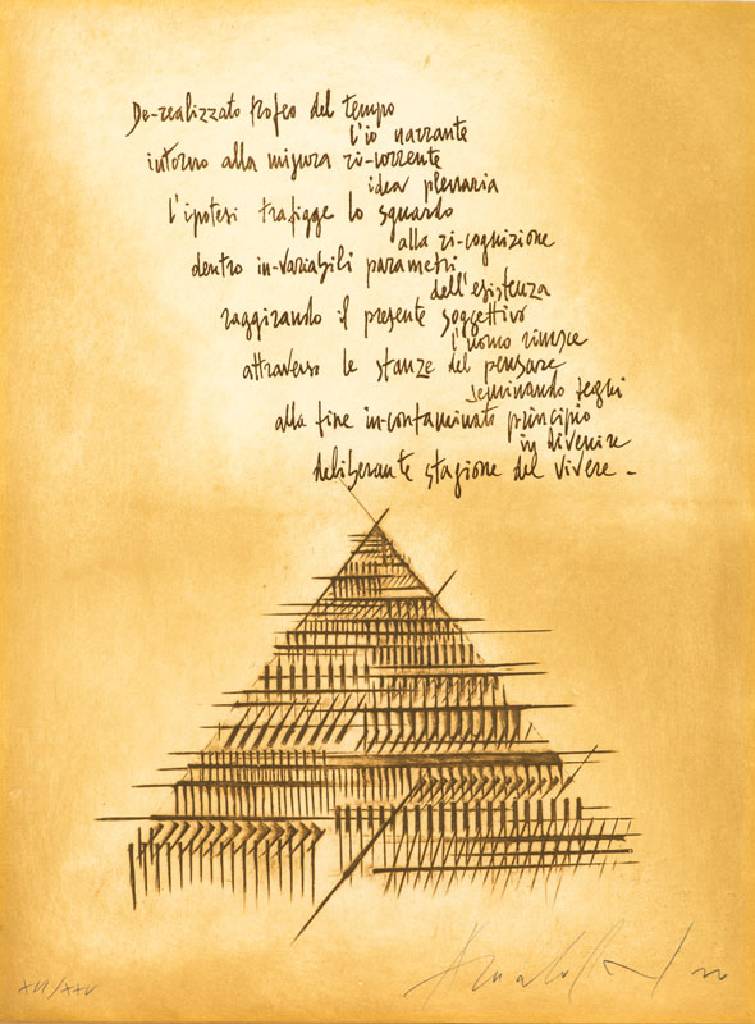 De-realizzato trofeo del tempo
l'io narrante
intorno alla misura ri-corrente
idea plenaria
l'ipotesi trafigge lo sguardo
alla ri-cognizione
dentro in-variabili parametri
dell'esistenza
raggirando il presente soggettivo
l'uomo rinasce
attraverso le stanze del pensare
seminando segni
alla fine in-contaminato principio
in divenire
deliberante stagione del vivere -
XVI/XXV
Arnaldo Pomodoro